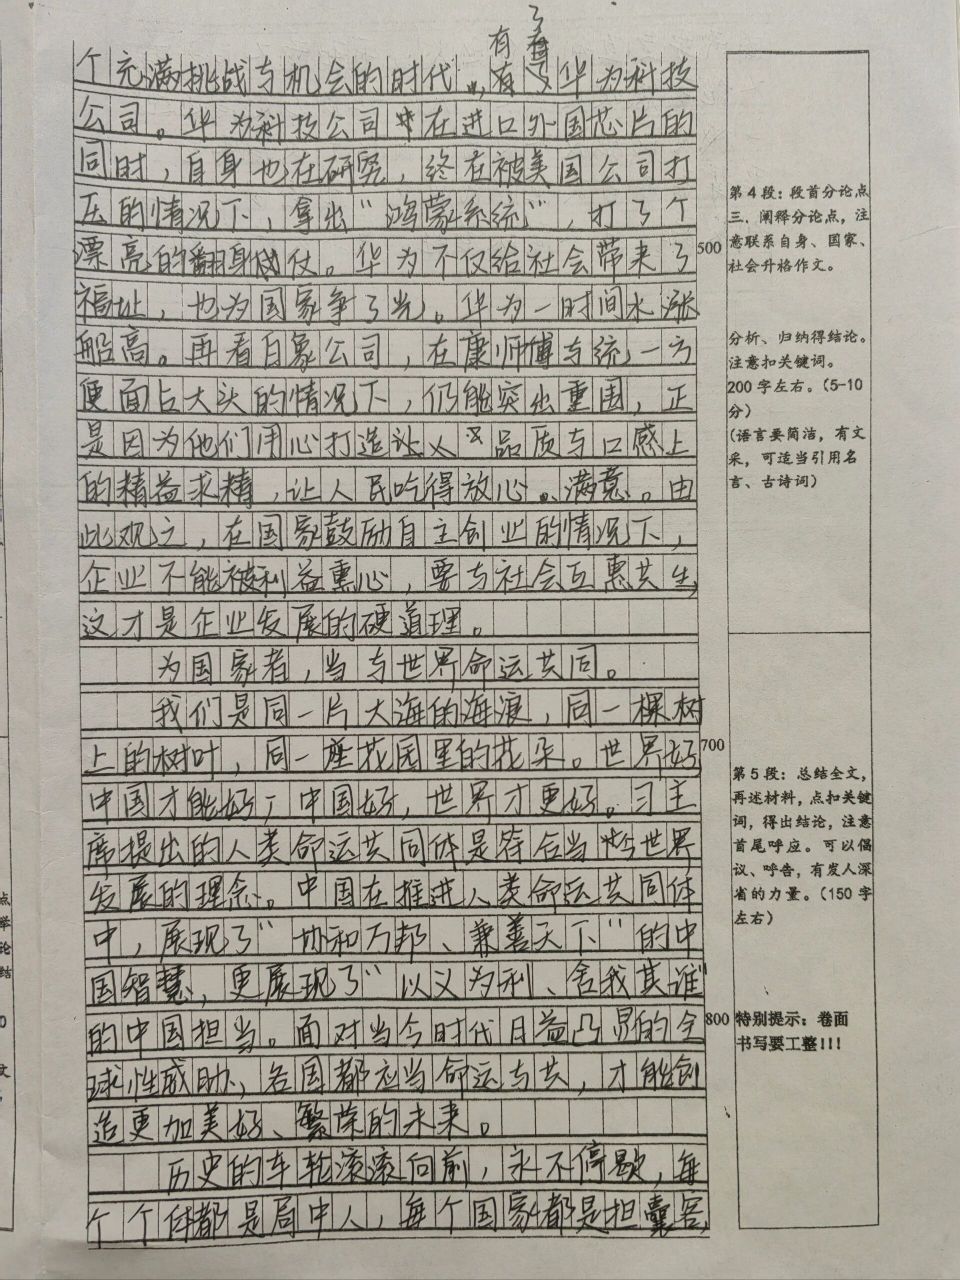 个充满挑战与机会的时代,有了华为科技
公司。华为科技公司在进口外国芯片的
同时,自身也在研究,终在被美国公司打
压的情况下,拿出“鸿蒙系统”,打了个
漂亮的翻身仗。华为不仅给社会带来了
福址,也为国家争了光。华为一时间水涨
船高。再看白象公司,在康师傅与统一方
便面占大头的情况下,仍能突出重围,正
是因为他们用心打造让人品质与口感上
的精益求精,让人民吃得放心、满意。由
此观之,在国家鼓励自主创业的情况下,
企业不能被利益熏心,要与社会互惠共生,
这才是企业发展的硬道理。
为国家者,当与世界命运共同。
我们是同一片大海的海浪,同一棵树
上的树叶,同一座花园里的花朵。世界好
中国才能好;中国好,世界才更好。习主
席提出的人类命运共同体是符合当今世界
发展的理念。中国在推进人类命运共同体
中,展现了“协和万邦、兼善天下”的中
国智慧,更展现了“以义为利、舍我其谁”
的中国担当。面对当今时代日益凸显的全
球性威胁,各国都应当命运与共,才能创
造更加美好、繁荣的未来。
历史的车轮滚滚向前,永不停歇,每
个个体都是局中人,每个国家都是担囊客,
500
700
800
第4段:段首分论点
三、阐释分论点,注
意联系自身、国家、
社会升格作文。
分析、归纳得结论。
注意扣关键词。
200字左右。(5-10
分)
(语言要简洁,有文
采,可适当引用名
言、古诗词)
第5段:总结全文,
再述材料,点扣关键
词,得出结论,注意
首尾呼应。可以倡
议、呼告,有发人深
省的力量。(150字
左右)
特别提示:卷面
书写要工整!!!
点
举
论
结